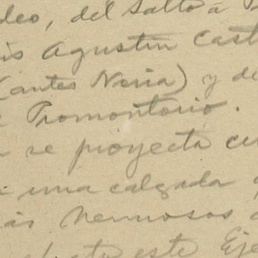 deo, del Salto á
is Agustin Cast
(antes Neria) y de
Promontorio.
se proyecta cu
una calzada
ás hermosos
este Eje